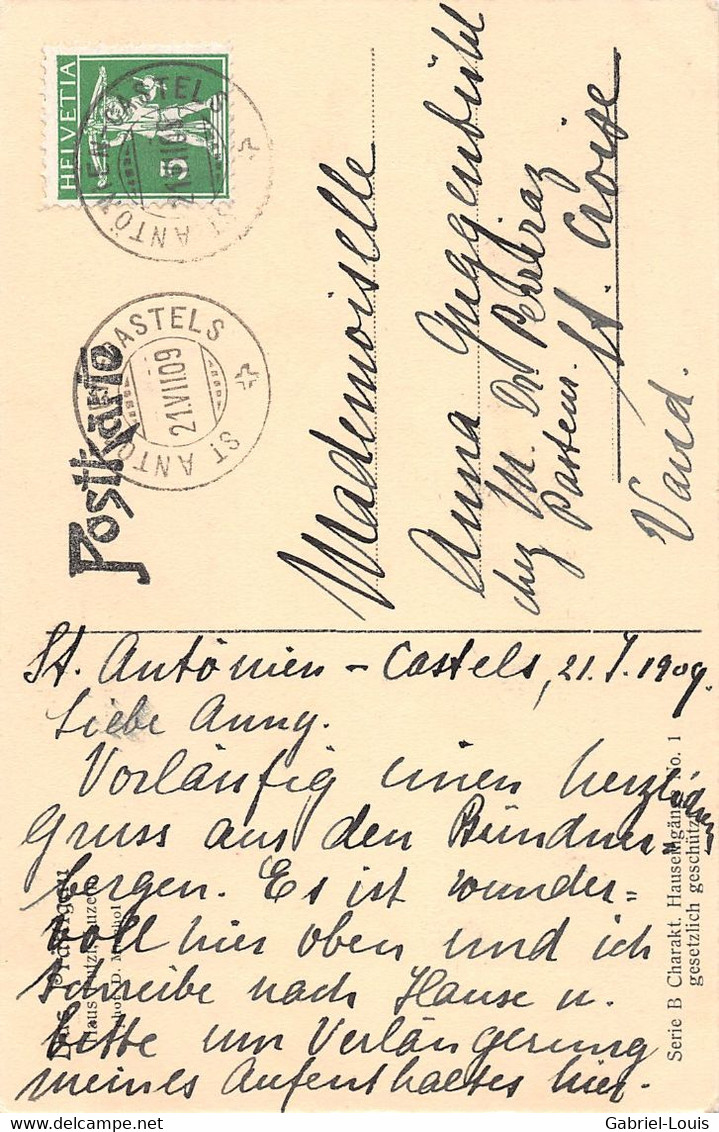 HELVETIA
5
ST. ANTÖNIEN-CASTELS
CASTELS
21.VII.09
ST. ANTÖ
Postkarte
Mademoiselle
Anna Guggenbühl
chez M. Dr.
Pasteur.
St. Croise
Vaud.
St. Antönien - Castels, 21. 7. 1909.
Liebe Anny.
Vorläufig einen herzlichen
Gruss aus den Bündner-
bergen. Es ist wunder=
voll hier oben und ich
schreibe nach Hause u.
bitte um Verlängerung
meines Aufenthaltes hier.
Serie B Charakt. Hauseingänge No. 1
gesetzlich geschützt
Gabriel-Louis